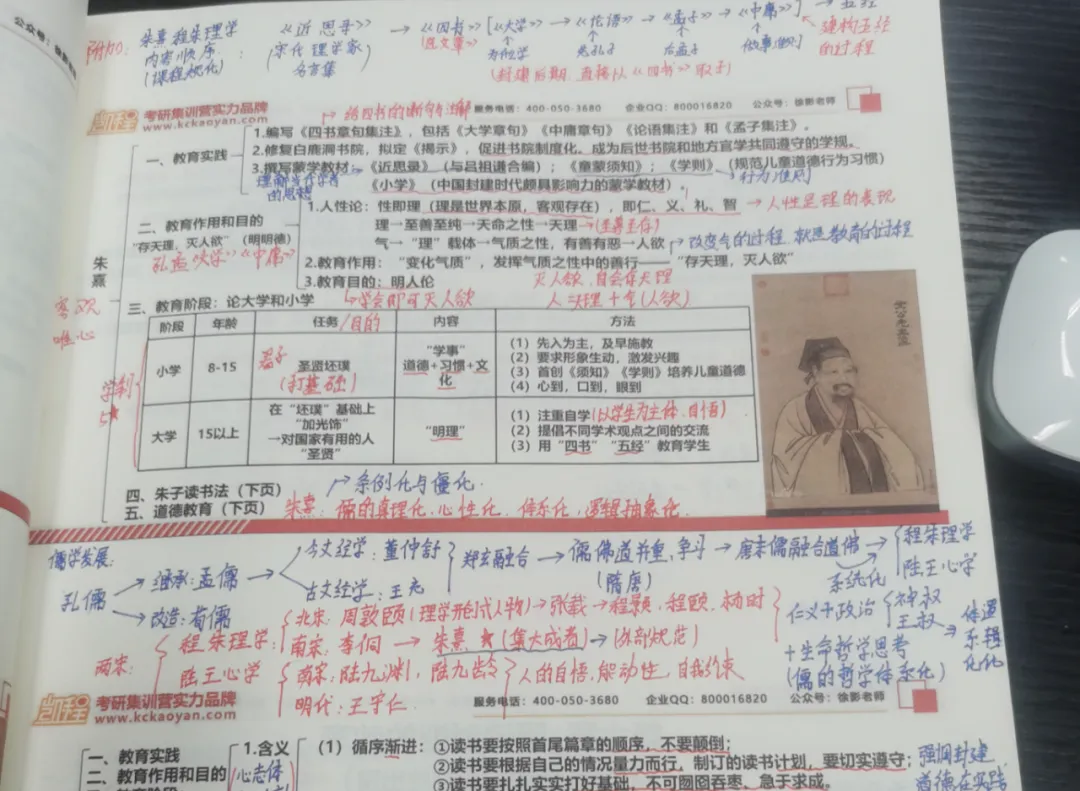 公众号：徐影老师
附加：朱熹程朱理学内容顺序（课程规化）：
《近思录》（宋代理学家名言集） → 《四书》[《大学》 → 《论语》 → 《孟子》 → 《中庸》] → 五经
为何学 怎孔子 后孟子 做事准则
（封建后期，直接从《四书》取士）
建构五经的过程
凯程 考研集训营实力品牌
www.kckaoyan.com
服务电话：400-050-3680 企业QQ：800016820 公众号：徐影老师
朱熹
一、教育实践
1.编写《四书章句集注》，包括《大学章句》《中庸章句》《论语集注》和《孟子集注》。
2.修复白鹿洞书院，拟定《揭示》，促进书院制度化。成为后世书院和地方官学共同遵守的学规。
3.撰写蒙学教材：《近思录》（与吕祖谦合编）；《童蒙须知》；《学则》（规范儿童道德行为习惯）
→行为准则
《小学》（中国封建时代颇具影响力的蒙学教材）。
的思想
二、教育作用和目的
“存天理，灭人欲”（明明德）
孔孟《大学》《中庸》
1.人性论：性即理（理是世界本原，客观存在），即仁、义、礼、智 → 人性是理的表现
理→至善至纯→天命之性→天理→(至尊至存)
气→“理”载体→气质之性，有善有恶→人欲 → 改变气的过程，就是教育的过程
2.教育作用：“变化气质”，发挥气质之性中的善行——“存天理，灭人欲”
3.教育目的：明人伦
灭人欲，自会存天理
↳学会即可灭人欲
人：天理+气（人欲）
客观唯心
三、教育阶段：论大学和小学
阶段 年龄 任务/目的 内容 方法
小学 8-15 圣贤坯璞（打基础） “学事”道德+习惯+文化
（1）先入为主，及早施教
（2）要求形象生动，激发兴趣
（3）首创《须知》《学则》培养儿童道德
（4）心到，口到，眼到
学制
大学 15以上 在“坯璞”基础上“加光饰”→对国家有用的人“圣贤” “明理”
（1）注重自学（以学生为主体，自悟）
（2）提倡不同学术观点之间的交流
（3）用“四书”“五经”教育学生
四、朱子读书法（下页） → 条例化与僵化.
五、道德教育（下页） 朱熹：儒的真理化，心性化，体系化，逻辑抽象化.
儒学发展：
孔儒
→ 继承：孟儒
→ 改造：荀儒
→ 今文经学：董仲舒
古文经学：王充
郑玄融合 → 儒佛道并重，争斗（隋唐） → 唐末儒融合道佛 → 程朱理学
陆王心学
系统化
两宋：
程朱理学：
北宋：周敦颐（理学形成人物）→张载→程颢，程颐，杨时
南宋：李侗 → 朱熹 ★（集大成者）
陆王心学
南宋：陆九渊，陆九龄
明代：王守仁.
人的自悟，能动性，自我约束
仁义于政治
神权
王权
+生命哲学思考
（儒的哲学体系化）
凯程 考研集训营实力品牌
www.kckaoyan.com
服务电话：400-050-3680 企业QQ：800016820 公众号：徐影老师
一、教育实践
二、教育作用和目的
1.含义
（1）循序渐进：①读书要按照首尾篇章的顺序，不要颠倒；
②读书要根据自己的情况量力而行，制订的读书计划，要切实遵守；
③读书要扎扎实实打好基础，不可囫囵吞枣，急于求成。
强调封建道德在实践